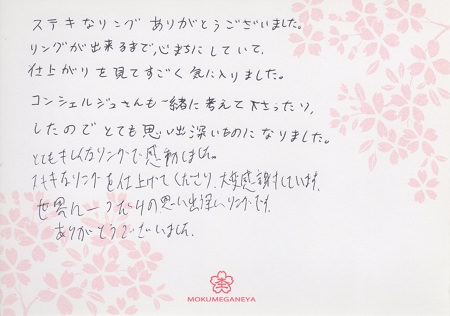 ステキなリング ありがとうございました。
リングが出来るまで心まちにしていて、
仕上がりを見てすごく気に入りました。
コンシェルジュさんも一緒に考えて下さったり、
したのでとても思い出深いものになりました。
とてもキレイなリングで感動しました。
ステキなリングを仕上げてくださり、大変感謝しています。
世界に一つだけの思い出深いリングです。
ありがとうございました。
MOKUMEGANEYA